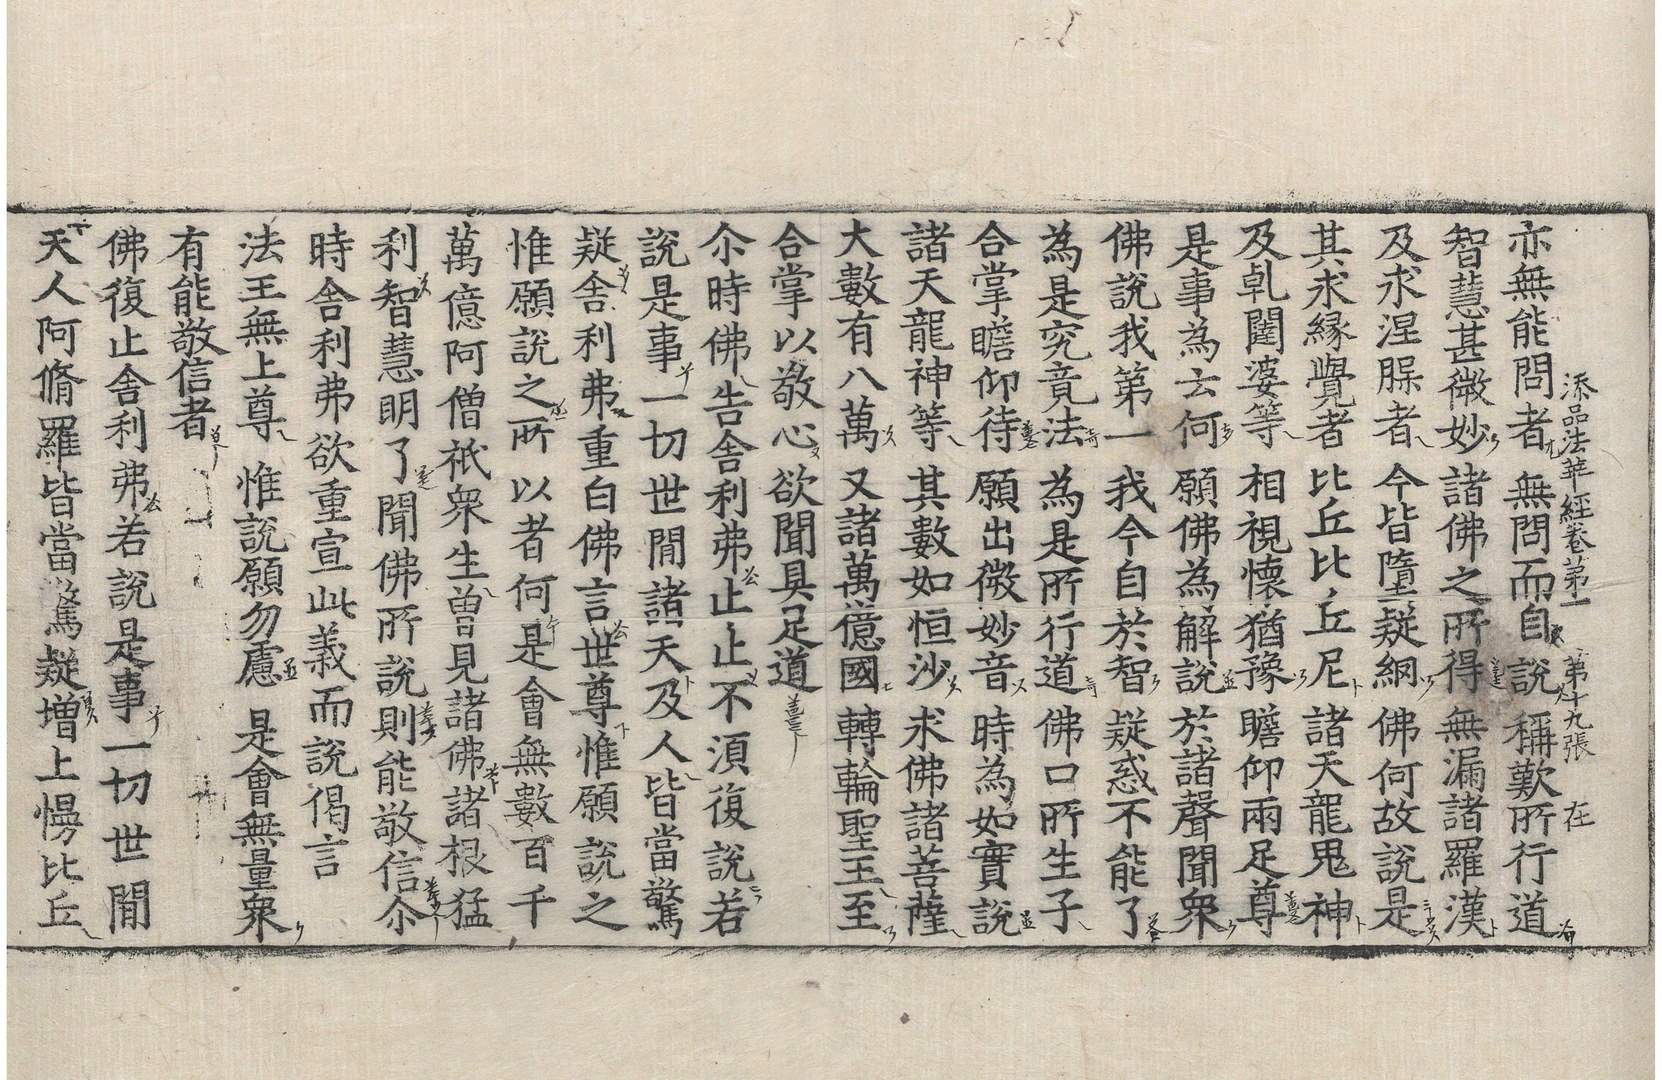 添品法華經卷第一 第十九張 在
亦無能問者 無問而自說 稱歎所行道
智慧甚微妙 諸佛之所得 無漏諸羅漢
及求涅槃者 今皆墮疑網 佛何故說是
其求緣覺者 比丘比丘尼 諸天龍鬼神
及乹闥婆等 相視懷猶豫 瞻仰兩足尊
是事為云何 願佛為解說 於諸聲聞衆
佛說我第一 我今自於智 疑惑不能了
為是究竟法 為是所行道 佛口所生子
合掌瞻仰待 願出微妙音 時為如實說
諸天龍神等 其數如恒沙 求佛諸菩薩
大數有八萬 又諸萬億國 轉輪聖王至
合掌以敬心 欲聞具足道
尒時佛告舍利弗止止不須復說若
說是事一切世閒諸天及人皆當驚
疑舍利弗重白佛言世尊惟願說之
惟願說之所以者何是會無數百千
萬億阿僧祇衆生曽見諸佛諸根猛
利智慧明了聞佛所說則能敬信尒
時舍利弗欲重宣此義而說偈言
法王無上尊 惟說願勿慮 是會無量衆
有能敬信者
佛復止舍利弗若說是事一切世閒
天人阿脩羅皆當驚疑增上慢比丘